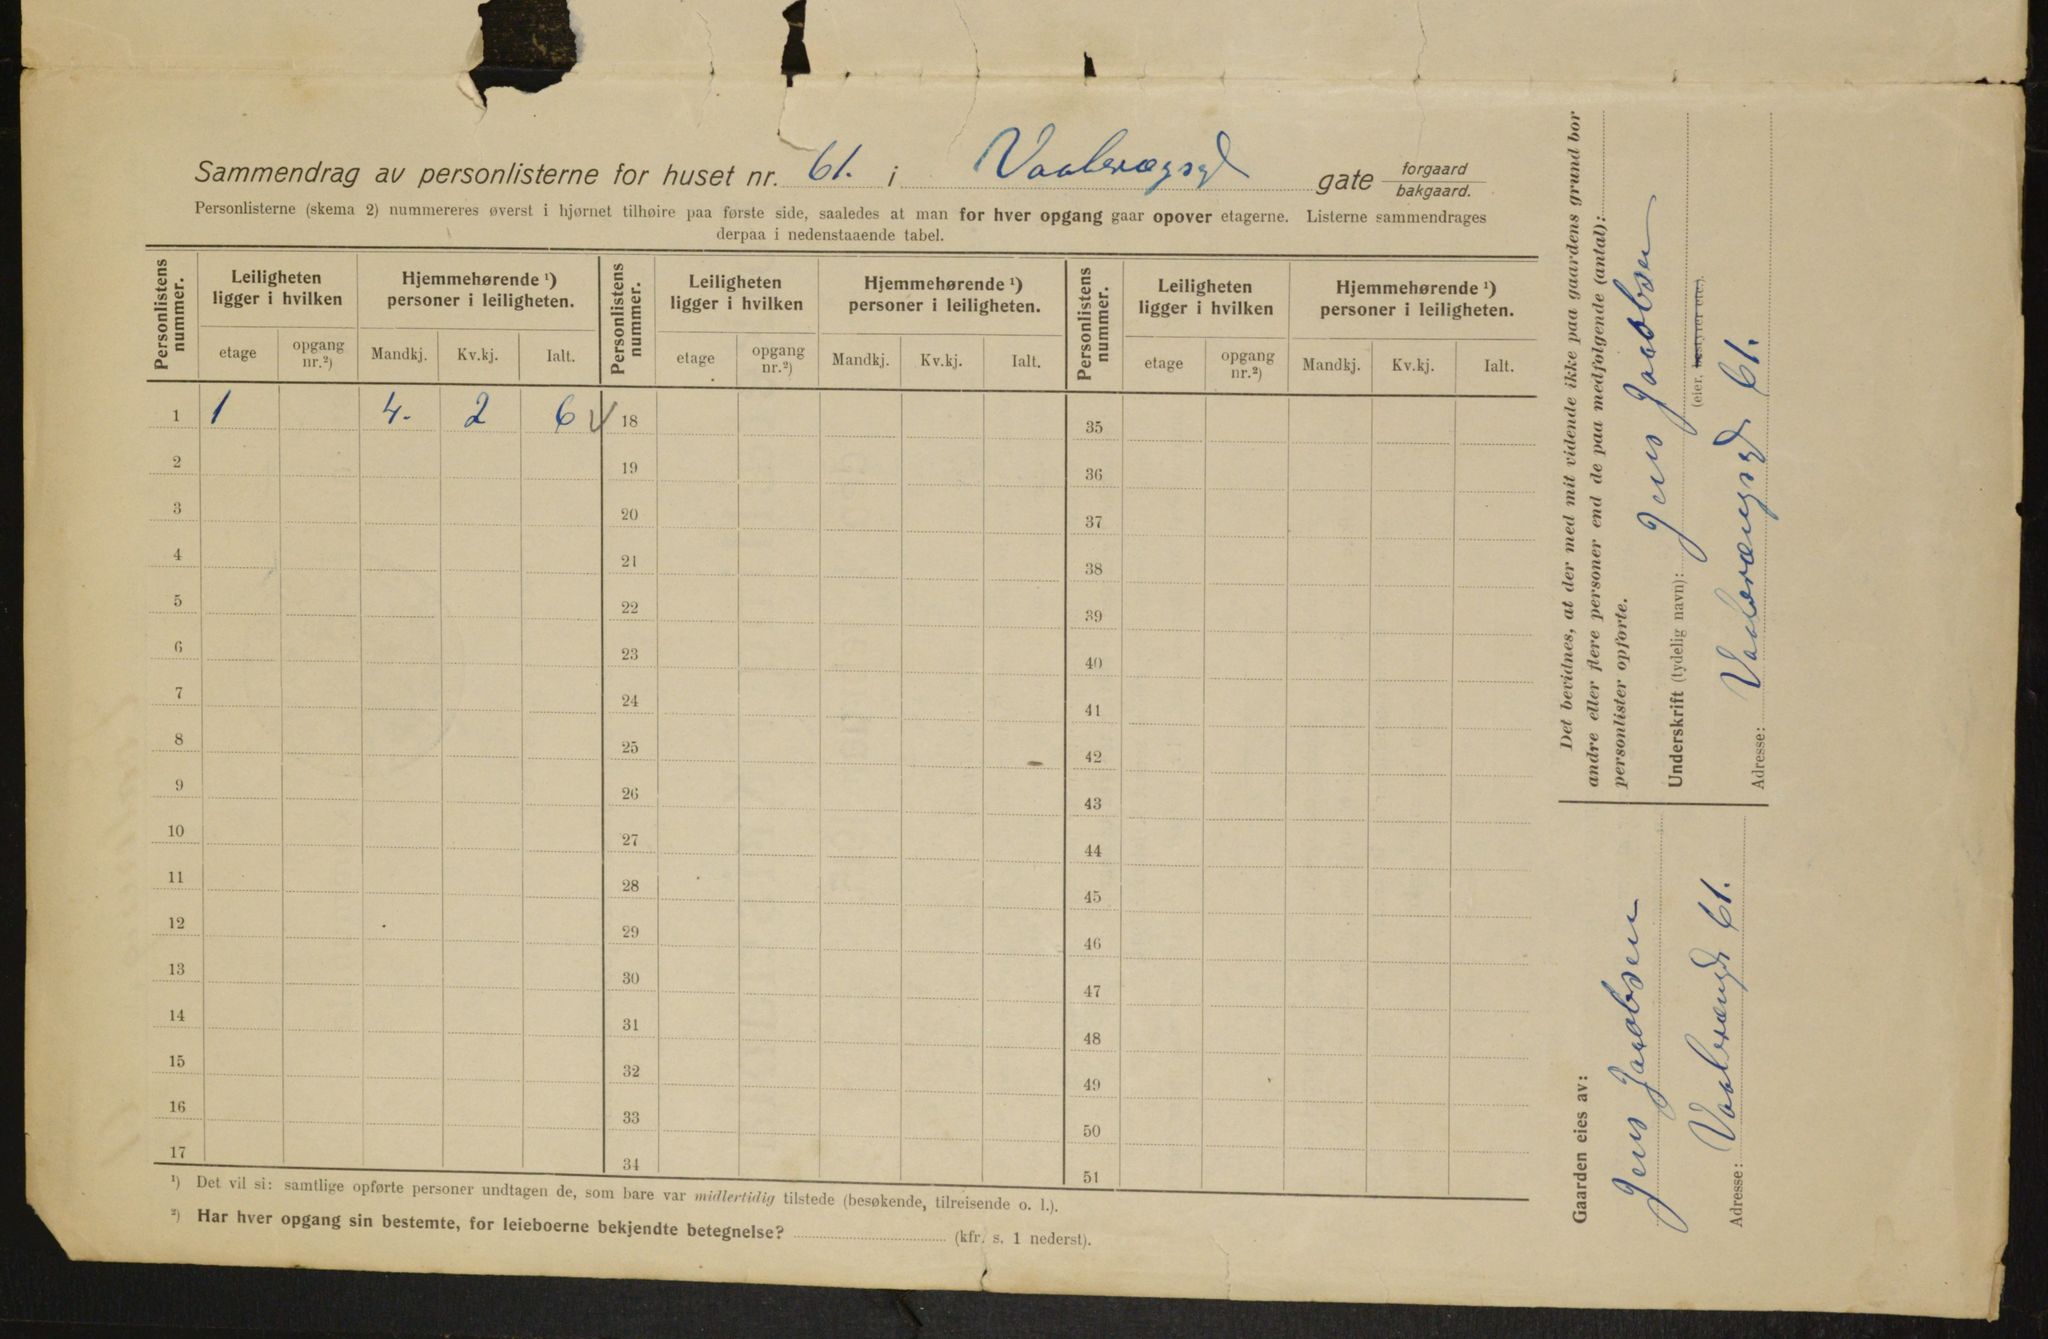 Sammendrag av personlisterne for huset nr. 61. i Vaalerægsgd gate forgaard bakgaard.
Personlisterne (skema 2) nummereres øverst i hjørnet tilhøire paa første side, saaledes at man for hver opgang gaar opover etagerne. Listerne sammendrages
derpaa i nedenstaaende tabel.
Personlistens nummer. Leiligheten ligger i hvilken Hjemmehørende ¹) personer i leiligheten. Personlistens nummer. Leiligheten ligger i hvilken Hjemmehørende ¹) personer i leiligheten. Personlistens nummer. Leiligheten ligger i hvilken Hjemmehørende ¹) personer i leiligheten.
etage opgang nr.²) Mandkj. Kv.kj. Ialt. etage opgang nr.²) Mandkj. Kv.kj. Ialt. etage opgang nr.²) Mandkj. Kv.kj. Ialt.
1 1 4. 2 6 18 35
2 19 36
3 20 37
4 21 38
5 22 39
6 23 40
7 24 41
8 25 42
9 26 43
10 27 44
11 28 45
12 29 46
13 30 47
14 31 48
15 32 49
16 33 50
17 34 51
¹) Det vil si: samtlige opførte personer undtagen de, som bare var midlertidig tilstede (besøkende, tilreisende o. l.).
²) Har hver opgang sin bestemte, for leieboerne bekjendte betegnelse? (kfr. s. 1 nederst).
Det bevidnes, at der med mit vidende ikke paa gaardens grund bor
andre eller flere personer end de paa medfølgende (antal):
personlister opførte.
Underskrift (tydelig navn): Jens Jacobsen
(eier, bestyrer etc.).
Adresse: Vaalerængsgd 61.
Gaarden eies av:
Jens Jacobsen
Adresse: Vaalerængsgd 61.